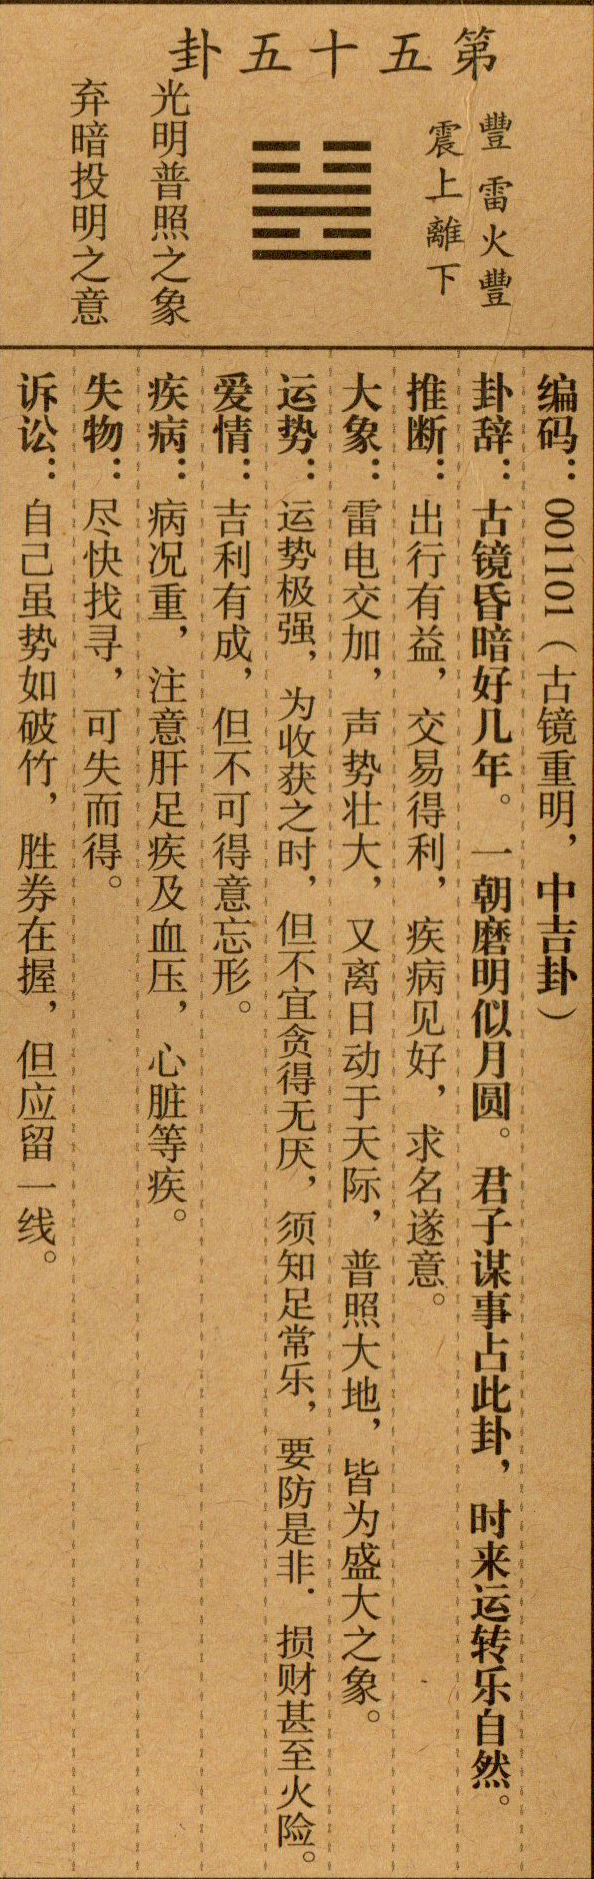 第五十五卦
豐 雷火豐
震上離下
光明普照之象
弃暗投明之意
编码：001101（古镜重明，中吉卦）
卦辞：古镜昏暗好几年。一朝磨明似月圆。君子谋事占此卦，时来运转乐自然。
推断：出行有益，交易得利，疾病见好，求名遂意。
大象：雷电交加，声势壮大，又离日动于天际，普照大地，皆为盛大之象。
运势：运势极强，为收获之时，但不宜贪得无厌，须知足常乐，要防是非．损财甚至火险。
爱情：吉利有成，但不可得意忘形。
疾病：病况重，注意肝足疾及血压，心脏等疾。
失物：尽快找寻，可失而得。
诉讼：自己虽势如破竹，胜券在握，但应留一线。